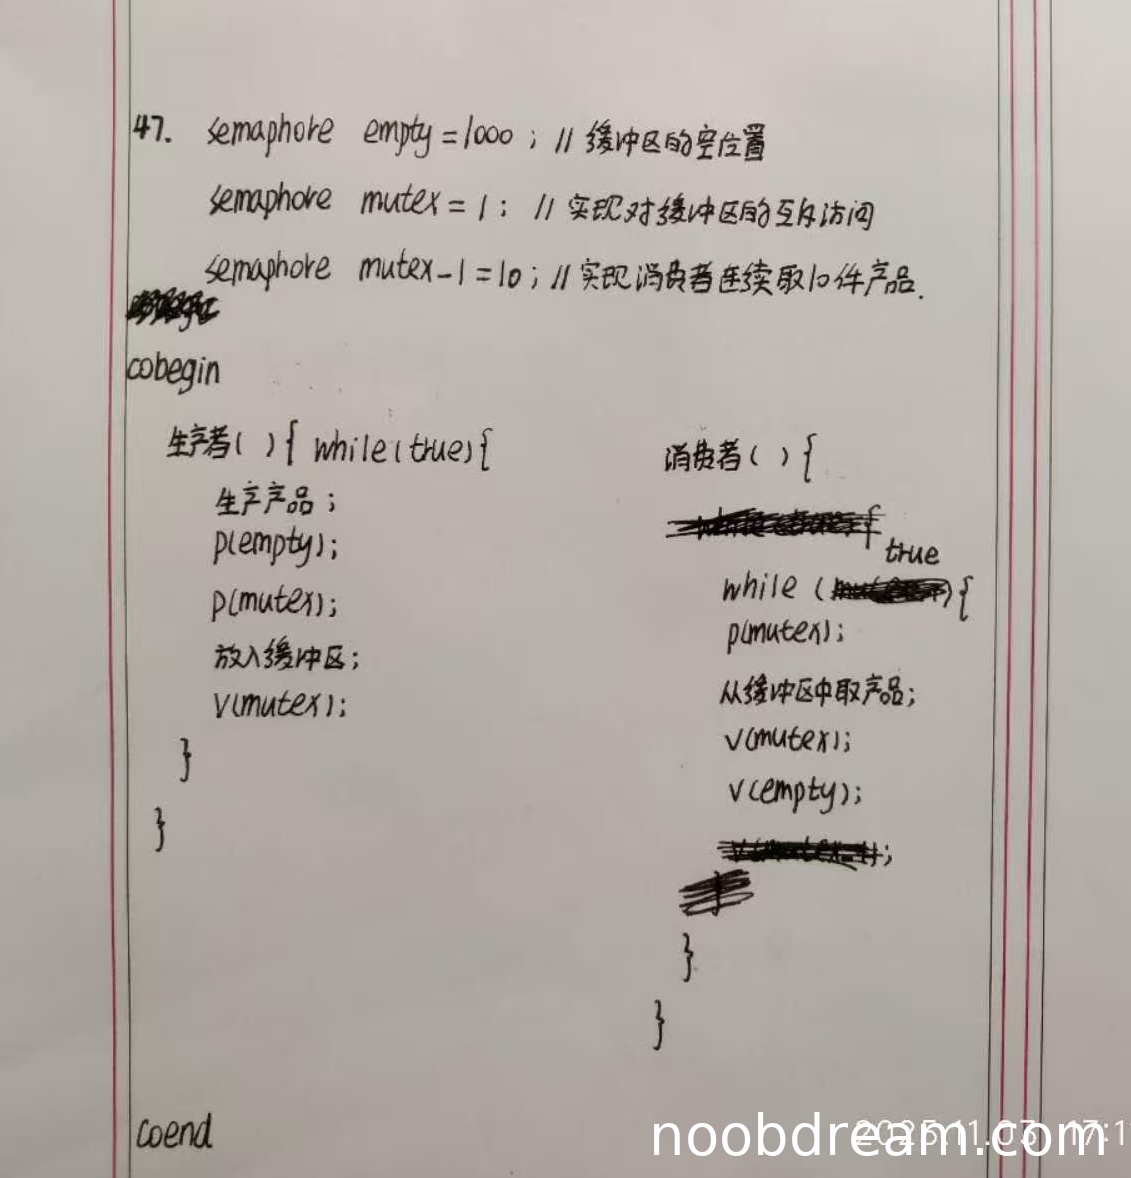 47. semaphore empty=1000; //缓冲区的空位置
semaphore mutex=1; //实现对缓冲区的互斥访问
semaphore mutex-1=10; //实现消费者连续取10件产品.
cobegin
生产者( ){ while(true){
生产产品;
p(empty);
p(mutex);
放入缓冲区;
v(mutex);
}
}
消费者( ){
while (true){
p(mutex);
从缓冲区中取产品;
v(mutex);
v(empty);
}
}
coend
noobdream.com